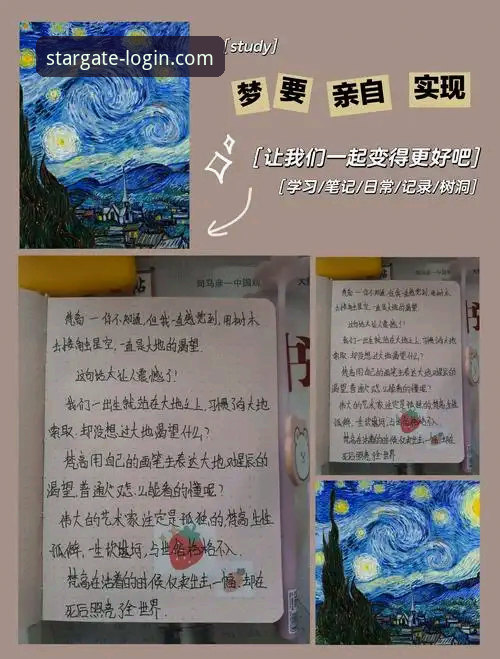 stargate-login.com
[study]
梦 要 亲自 实现
[让我们一起变得更好吧]
[学习/笔记/日常/记录/树洞]
斑马彦一中国
梵高一你不知道,但我一直感觉到,用树木
去接触星空,一直是大地的渴望.
这句话太让人震撼了!
我们一出生就站在大地之上,习惯了向大地
索取.却没想过大地渴望什么?
梵高用自己的画笔去表达大地对星辰的
渴望,普通人怎么能看的懂呢?
伟大的艺术家注定是孤独的,梵高生性
孤僻,一世坎坷,与世俗格格不入.
梵高在活着的时候仅卖出去一幅,却在
死后照亮了全世界.
梵高一你不知道,但我一直感觉到,用树木
去接触星空,一直是大地的渴望.
这句话太让人震撼了!
我们一出生就站在大地之上,习惯了向大地
索取.却没想过大地渴望什么?
梵高用自己的画笔去表达大地对星辰的
渴望,普通人怎么能看的懂呢?
伟大的艺术家注定是孤独的,梵高生性
孤僻,一世坎坷,与世俗格格不入.
梵高在活着的时候仅卖出去一幅,却在
死后照亮了全世界.